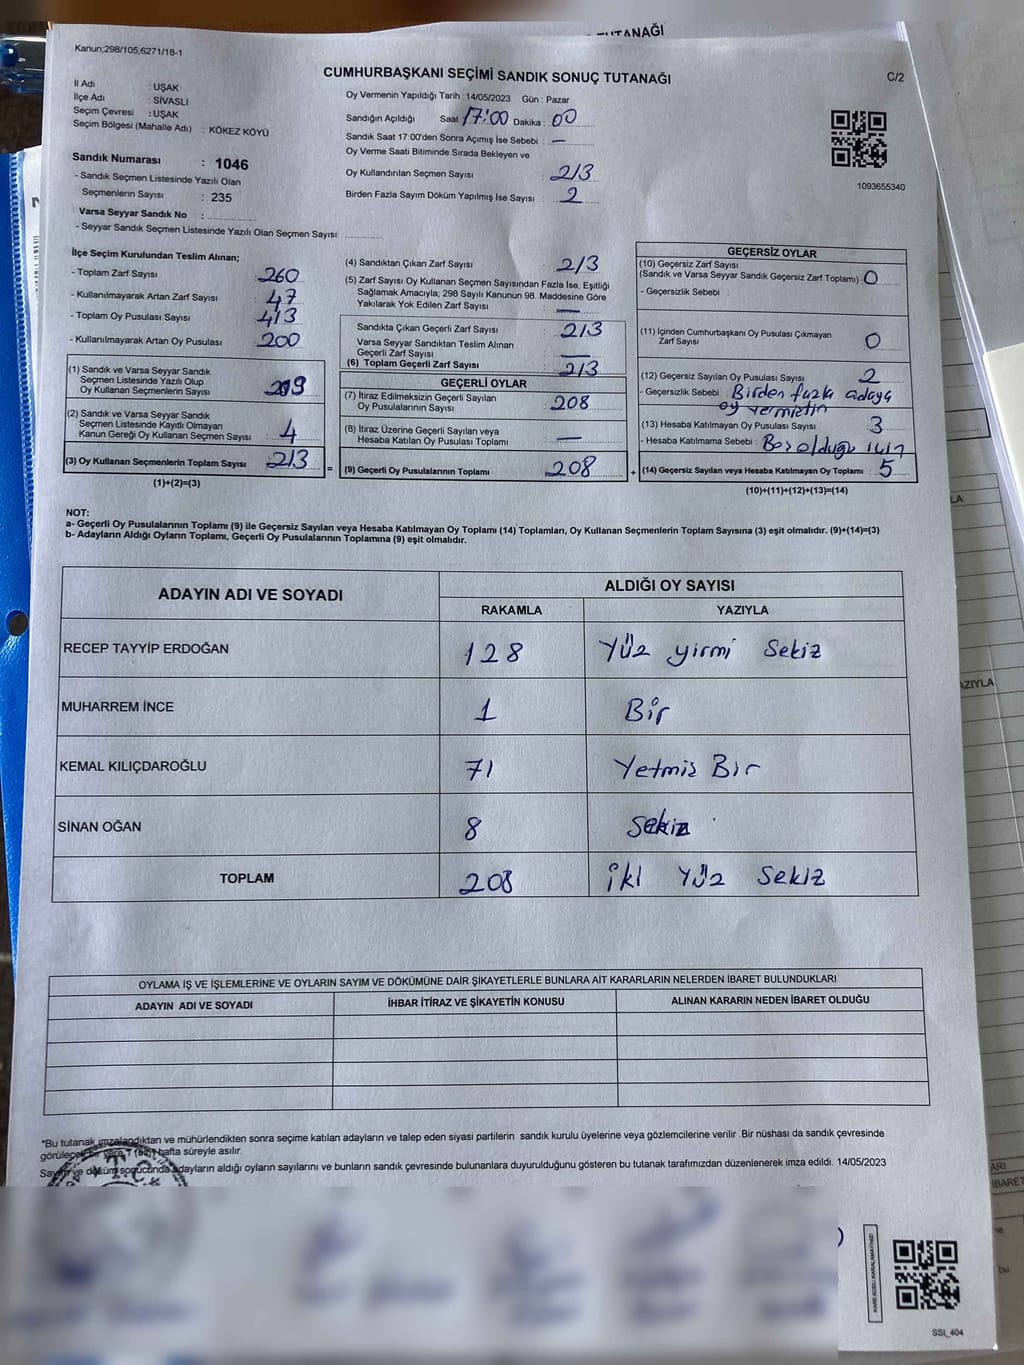 TUTANAĞI
Kanun;298/105,6271/18-1
CUMHURBAŞKANI SEÇİMİ SANDIK SONUÇ TUTANAĞI
C/2
İl Adı : UŞAK
İlçe Adı : SİVASLI
Seçim Çevresi : UŞAK
Seçim Bölgesi (Mahalle Adı) : KÖKEZ KÖYÜ
Sandık Numarası : 1046
- Sandık Seçmen Listesinde Yazılı Olan
Seçmenlerin Sayısı : 235
Varsa Seyyar Sandık No :
- Seyyar Sandık Seçmen Listesinde Yazılı Olan Seçmen Sayısı:
Oy Vermenin Yapıldığı Tarih : 14/05/2023 Gün : Pazar
Sandığın Açıldığı Saat 17:00 Dakika : 00
Sandık Saat 17:00'den Sonra Açımış İse Sebebi : —
Oy Verme Saati Bitiminde Sırada Bekleyen ve
Oy Kullandırılan Seçmen Sayısı : 213
Birden Fazla Sayım Döküm Yapılmış İse Sayısı : 2
1093655340
İlçe Seçim Kurulundan Teslim Alınan;
- Toplam Zarf Sayısı : 260
- Kullanılmayarak Artan Zarf Sayısı : 47
- Toplam Oy Pusulası Sayısı : 413
- Kullanılmayarak Artan Oy Pusulası : 200
(1) Sandık ve Varsa Seyyar Sandık
Seçmen Listesinde Yazılı Olup
Oy Kullanan Seçmenlerin Sayısı : 209
(2) Sandık ve Varsa Seyyar Sandık
Seçmen Listesinde Kayıtlı Olmayan
Kanun Gereği Oy Kullanan Seçmen Sayısı : 4
(3) Oy Kullanan Seçmenlerin Toplam Sayısı : 213
(1)+(2)=(3)
(4) Sandıktan Çıkan Zarf Sayısı : 213
(5) Zarf Sayısı Oy Kullanan Seçmen Sayısından Fazla İse, Eşitliği
Sağlamak Amacıyla; 298 Sayılı Kanunun 98. Maddesine Göre
Yakılarak Yok Edilen Zarf Sayısı : —
Sandıkta Çıkan Geçerli Zarf Sayısı : 213
Varsa Seyyar Sandıktan Teslim Alınan
Geçerli Zarf Sayısı : —
(6) Toplam Geçerli Zarf Sayısı : 213
GEÇERLİ OYLAR
(7) İtiraz Edilmeksizin Geçerli Sayılan
Oy Pusulalarının Sayısı : 208
(8) İtiraz Üzerine Geçerli Sayılan veya
Hesaba Katılan Oy Pusulası Toplamı : —
= (9) Geçerli Oy Pusulalarının Toplamı : 208
GEÇERSİZ OYLAR
(10) Geçersiz Zarf Sayısı
(Sandık ve Varsa Seyyar Sandık Geçersiz Zarf Toplamı) : 0
- Geçersizlik Sebebi :
(11) İçinden Cumhurbaşkanı Oy Pusulası Çıkmayan
Zarf Sayısı : 0
(12) Geçersiz Sayılan Oy Pusulası Sayısı : 2
- Geçersizlik Sebebi : Birden fazla adaya
oy
(13) Hesaba Katılmayan Oy Pusulası Sayısı : 3
- Hesaba Katılmama Sebebi : Boş olduğu için
+ (14) Geçersiz Sayılan veya Hesaba Katılmayan Oy Toplamı : 5
(10)+(11)+(12)+(13)=(14)
NOT:
a- Geçerli Oy Pusulalarının Toplamı (9) ile Geçersiz Sayılan veya Hesaba Katılmayan Oy Toplamı (14) Toplamları, Oy Kullanan Seçmenlerin Toplam Sayısına (3) eşit olmalıdır. (9)+(14)=(3)
b- Adayların Aldığı Oyların Toplamı, Geçerli Oy Pusulalarının Toplamına (9) eşit olmalıdır.
ADAYIN ADI VE SOYADI
ALDIĞI OY SAYISI
RAKAMLA YAZIYLA
RECEP TAYYİP ERDOĞAN 128 Yüz yirmi Sekiz
MUHARREM İNCE 1 Bir
KEMAL KILIÇDAROĞLU 71 Yetmis Bir
SİNAN OĞAN 8 Sekiz
TOPLAM 208 iki Yüz Sekiz
OYLAMA İŞ VE İŞLEMLERİNE VE OYLARIN SAYIM VE DÖKÜMÜNE DAİR ŞİKAYETLERLE BUNLARA AİT KARARLARIN NELERDEN İBARET BULUNDUKLARI
ADAYIN ADI VE SOYADI İHBAR İTİRAZ VE ŞİKAYETİN KONUSU ALINAN KARARIN NEDEN İBARET OLDUĞU
*Bu tutanak imzalandıktan ve mühürlendikten sonra seçime katılan adayların ve talep eden siyasi partilerin sandık kurulu üyelerine veya gözlemcilerine verilir .Bir nüshası da sandık çevresinde
görülecek bir yere 7 hafta süreyle asılır.
Sayım ve döküm sonucunda adayların aldığı oyların sayılarını ve bunların sandık çevresinde bulunanlara duyurulduğunu gösteren bu tutanak tarafımızdan düzenlenerek imza edildi. 14/05/2023
T.C.
KARE KODU KARALAMAYINIZ!
SSI_404
LA
AZIYLA
ARI
İBARET
bu